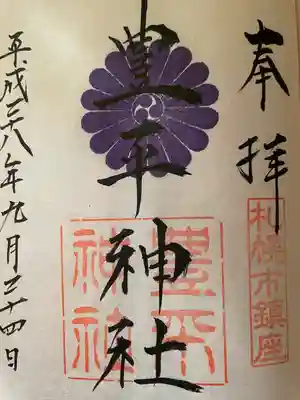 奉拝
札幌市鎮座
豊平神社
豊平
神社
平成二十八年九月二十四日